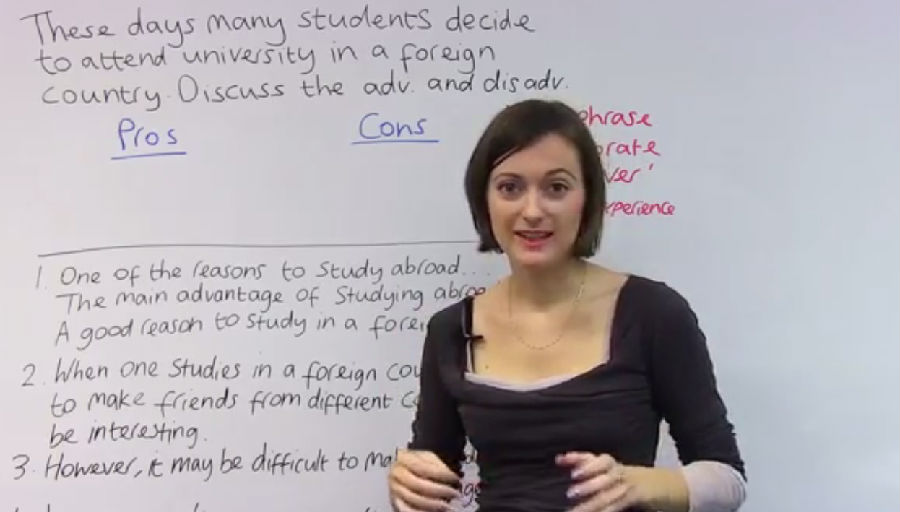 These days many students decide
to attend university in a foreign
country. Discuss the adv. and disadv.
Pros
Cons
1. One of the reasons to study abroad...
The main advantage of studying
A good reason to study in a
2. When one studies in a foreign
to make friends from different
be interesting.
3. However, it may be difficult to